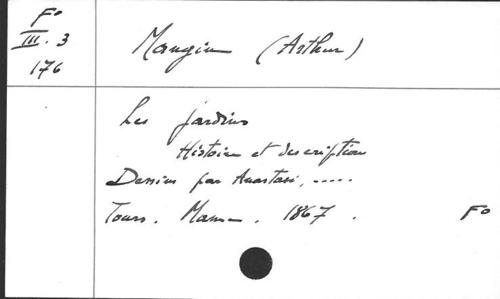 F°
III. 3
176
Mangin (Arthur)
Les jardins
Histoire et description
Dessins par Anastasi, .....
Tours. Mame. 1867.
F°